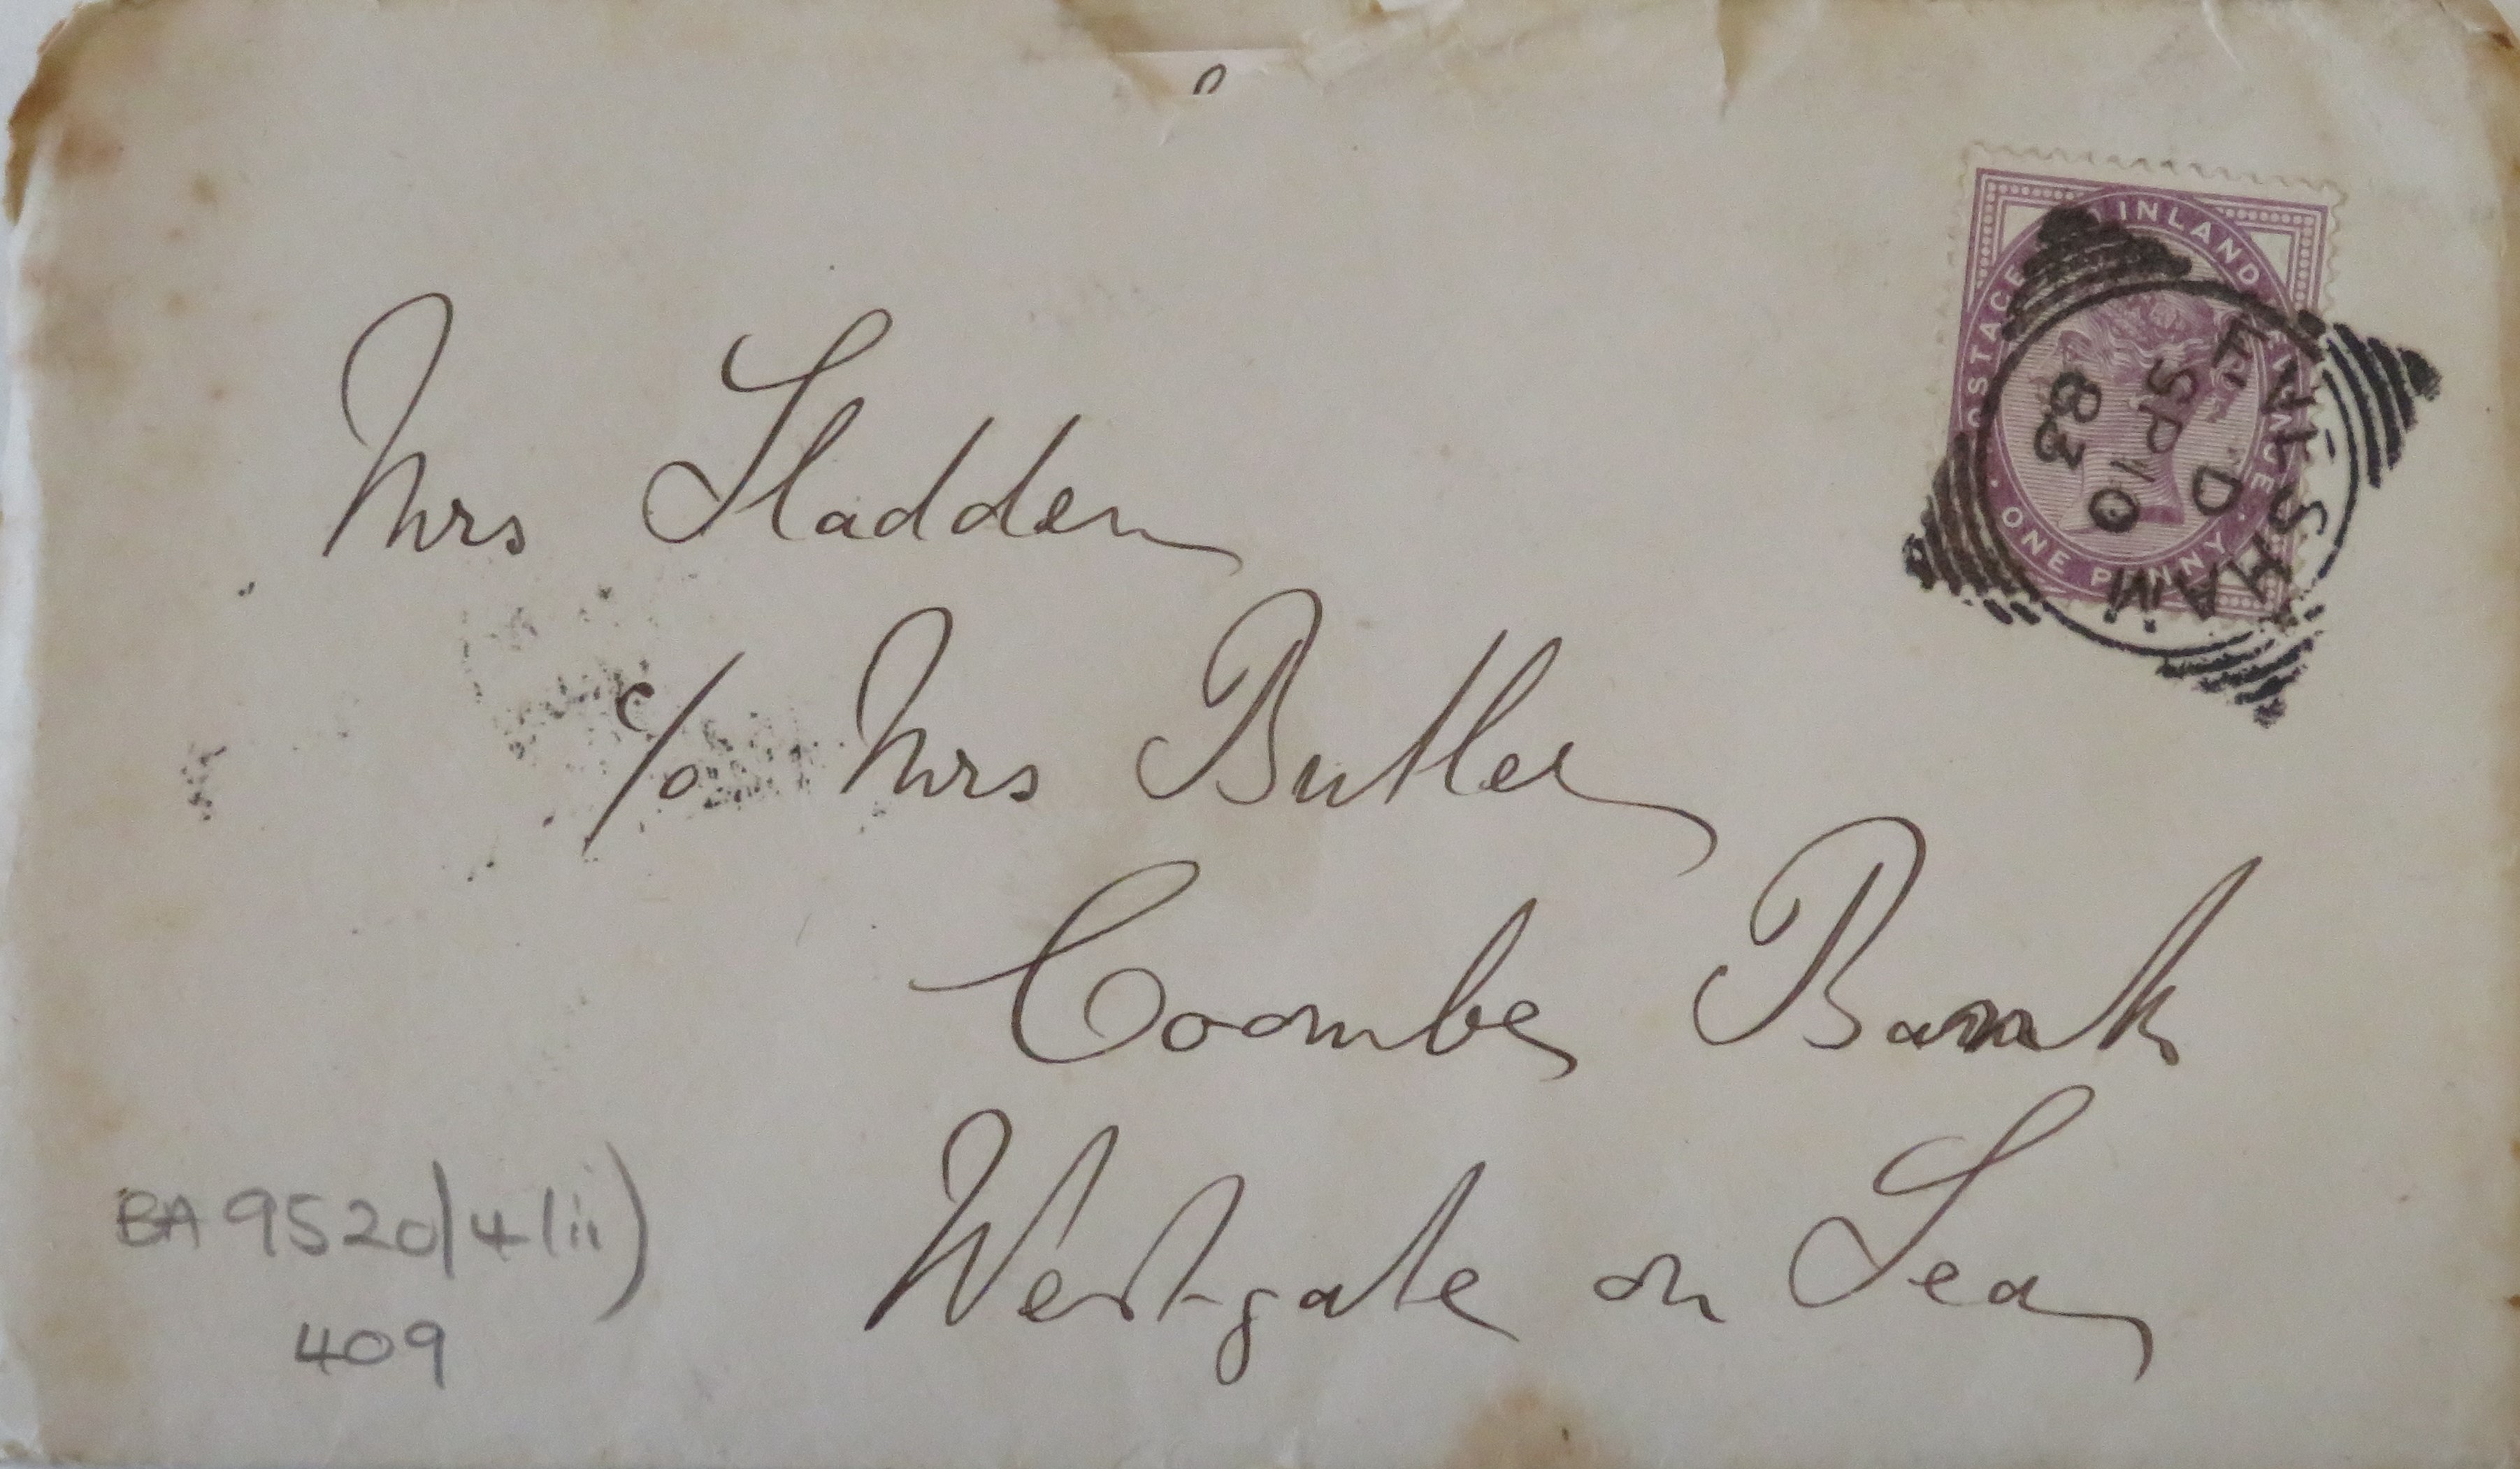 POSTAGE AND INLAND REVENUE
ONE PENNY
EVESHAM
D
SP 10
83
Mrs Sladden
c/o Mrs Butler
Coombe Bank
Westgate on Sea
BA 9520/4(ii)
409